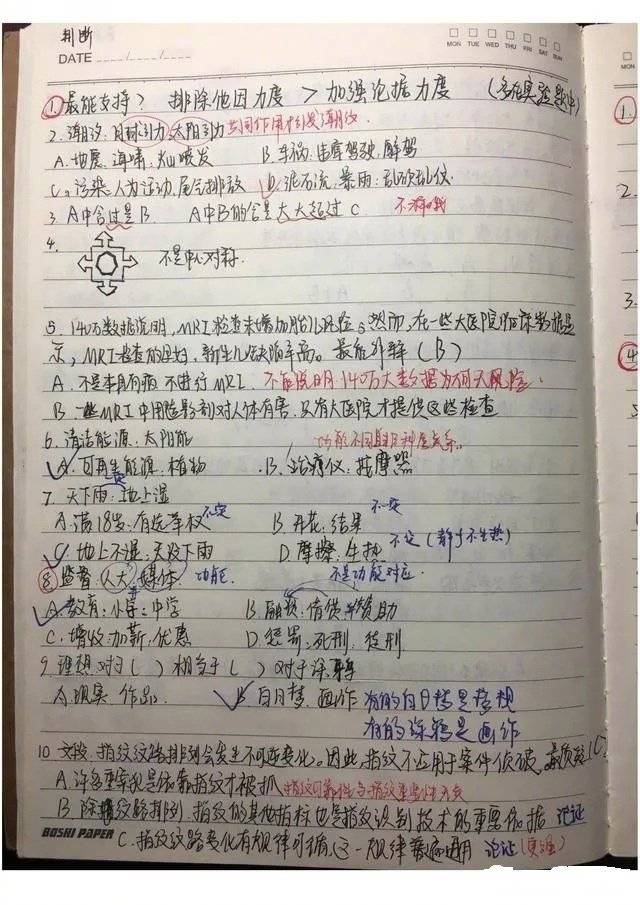 判断
DATE
MON TUE WED THU FRI SAT SUN
①最能支持？ 排除他因力度 > 加强论据力度 (多在实验题中)
2. 潮汐：月球引力，太阳引力 共同作用才引发潮汐
A. 地震：海啸：火山喷发 B. 车祸：疲劳驾驶，醉驾
C. 污染：人为活动，尾气排放 D. 泥石流：暴雨：乱砍乱伐
3. A中含过量B A中B的含量大大超过C
4. 不是中心对称.
5. 140万数据说明，MRI检查未增加胎儿风险。然而，在一些大医院临床数据显
示，MRI检查的孕妇，新生儿缺陷率高。最能解释 (B)
A. 不是本身有病 不进行MRI. 不能说明140万大数据为何无风险.
B. 一些MRI中用造影剂对人体有害，只有大医院才提供这些检查
6. 清洁能源：太阳能
A. 可再生能源：植物 B. 治疗仪：按摩器
7. 天下雨：地上湿
A. 满18岁：有选举权 不一定 B. 开花：结果 不一定
C. 地上不湿：天没下雨 D. 摩擦：生热 不一定 (静止不生热)
⑧ 监督：人大：媒体 功能. 不是功能对应.
A. 教育：小学：中学 B. 融资：借贷：赞助
C. 增收：加薪，优惠 D. 惩罚，死刑，徒刑
9. 理想 对于 ( ) 相当于 ( ) 对于涂鸦
A. 现实 作品 B 白日梦 画作 有的白日梦是梦想
有的涂鸦是画作
10 文段：指纹纹路排列会发生不可逆变化。因此，指纹不应用于案件侦破 最质疑 (C
A. 许多重案犯是依靠指纹才被抓
B. 除指纹纹路排列，指纹的其他指标也是指纹识别技术的重要依据 论证
BOSHI PAPER
C. 指纹纹路变化有规律可循，这一规律普遍适用 论证
MON
1.
2.
3.
④
5